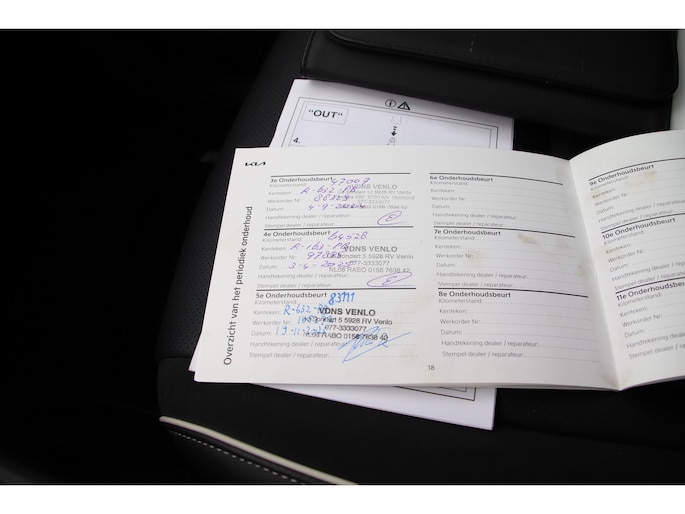 "OUT"
4.
KIA
Overzicht van het periodiek onderhoud
3e Onderhoudsbeurt
Kilometerstand: 47007
Kenteken: R-652-PB
VDNS VENLO
Werkorder Nr
077-3333077
Datum: 4-9-2024
NL08 RABO 0156 7638 42
Handtekening dealer / reparateur:
Stempel dealer / reparateur:
4e Onderhoudsbeurt
Kilometerstand: 64528
Kenteken:
VDNS VENLO
Werkorder Nr
5 5928 RV Venlo
Datum: 3-4-2025
077-3333077
NL08 RABO 0156 7638 42
Handtekening dealer / reparateur:
Stempel dealer / reparateur:
5e Onderhoudsbeurt
Kilometerstand: 83111
Kenteken: R-652-PB
VDNS VENLO
Werkorder Nr
5 5928 RV Venlo
Datum:
077-3333077
NL08 RABO 0156 7638 42
Handtekening dealer / reparateur:
Stempel dealer / reparateur:
6e Onderhoudsbeurt
Kilometerstand:
Kenteken:
Werkorder Nr:
Datum:
Handtekening dealer / reparateur:
Stempel dealer / reparateur:
7e Onderhoudsbeurt
Kilometerstand:
Kenteken:
Werkorder Nr:
Datum:
Handtekening dealer / reparateur:
Stempel dealer / reparateur:
8e Onderhoudsbeurt
Kilometerstand:
Kenteken:
Werkorder Nr:
Datum:
Handtekening dealer / reparateur:
Stempel dealer / reparateur:
18
9e Onderhoudsbeurt
Kilometerstand:
Kenteken:
Werkorder Nr:
Datum:
Handtekening dealer
Stempel dealer / reparateur
10e Onderhoudsbeurt
Kilometerstand:
Kenteken:
Werkorder Nr:
Datum:
Handtekening dealer / r
Stempel dealer / reparateur
11e Onderhoudsbeurt
Kilometerstand:
Kenteken:
Werkorder Nr:
Datum:
Handtekening dealer / repara
Stempel dealer / reparateur: